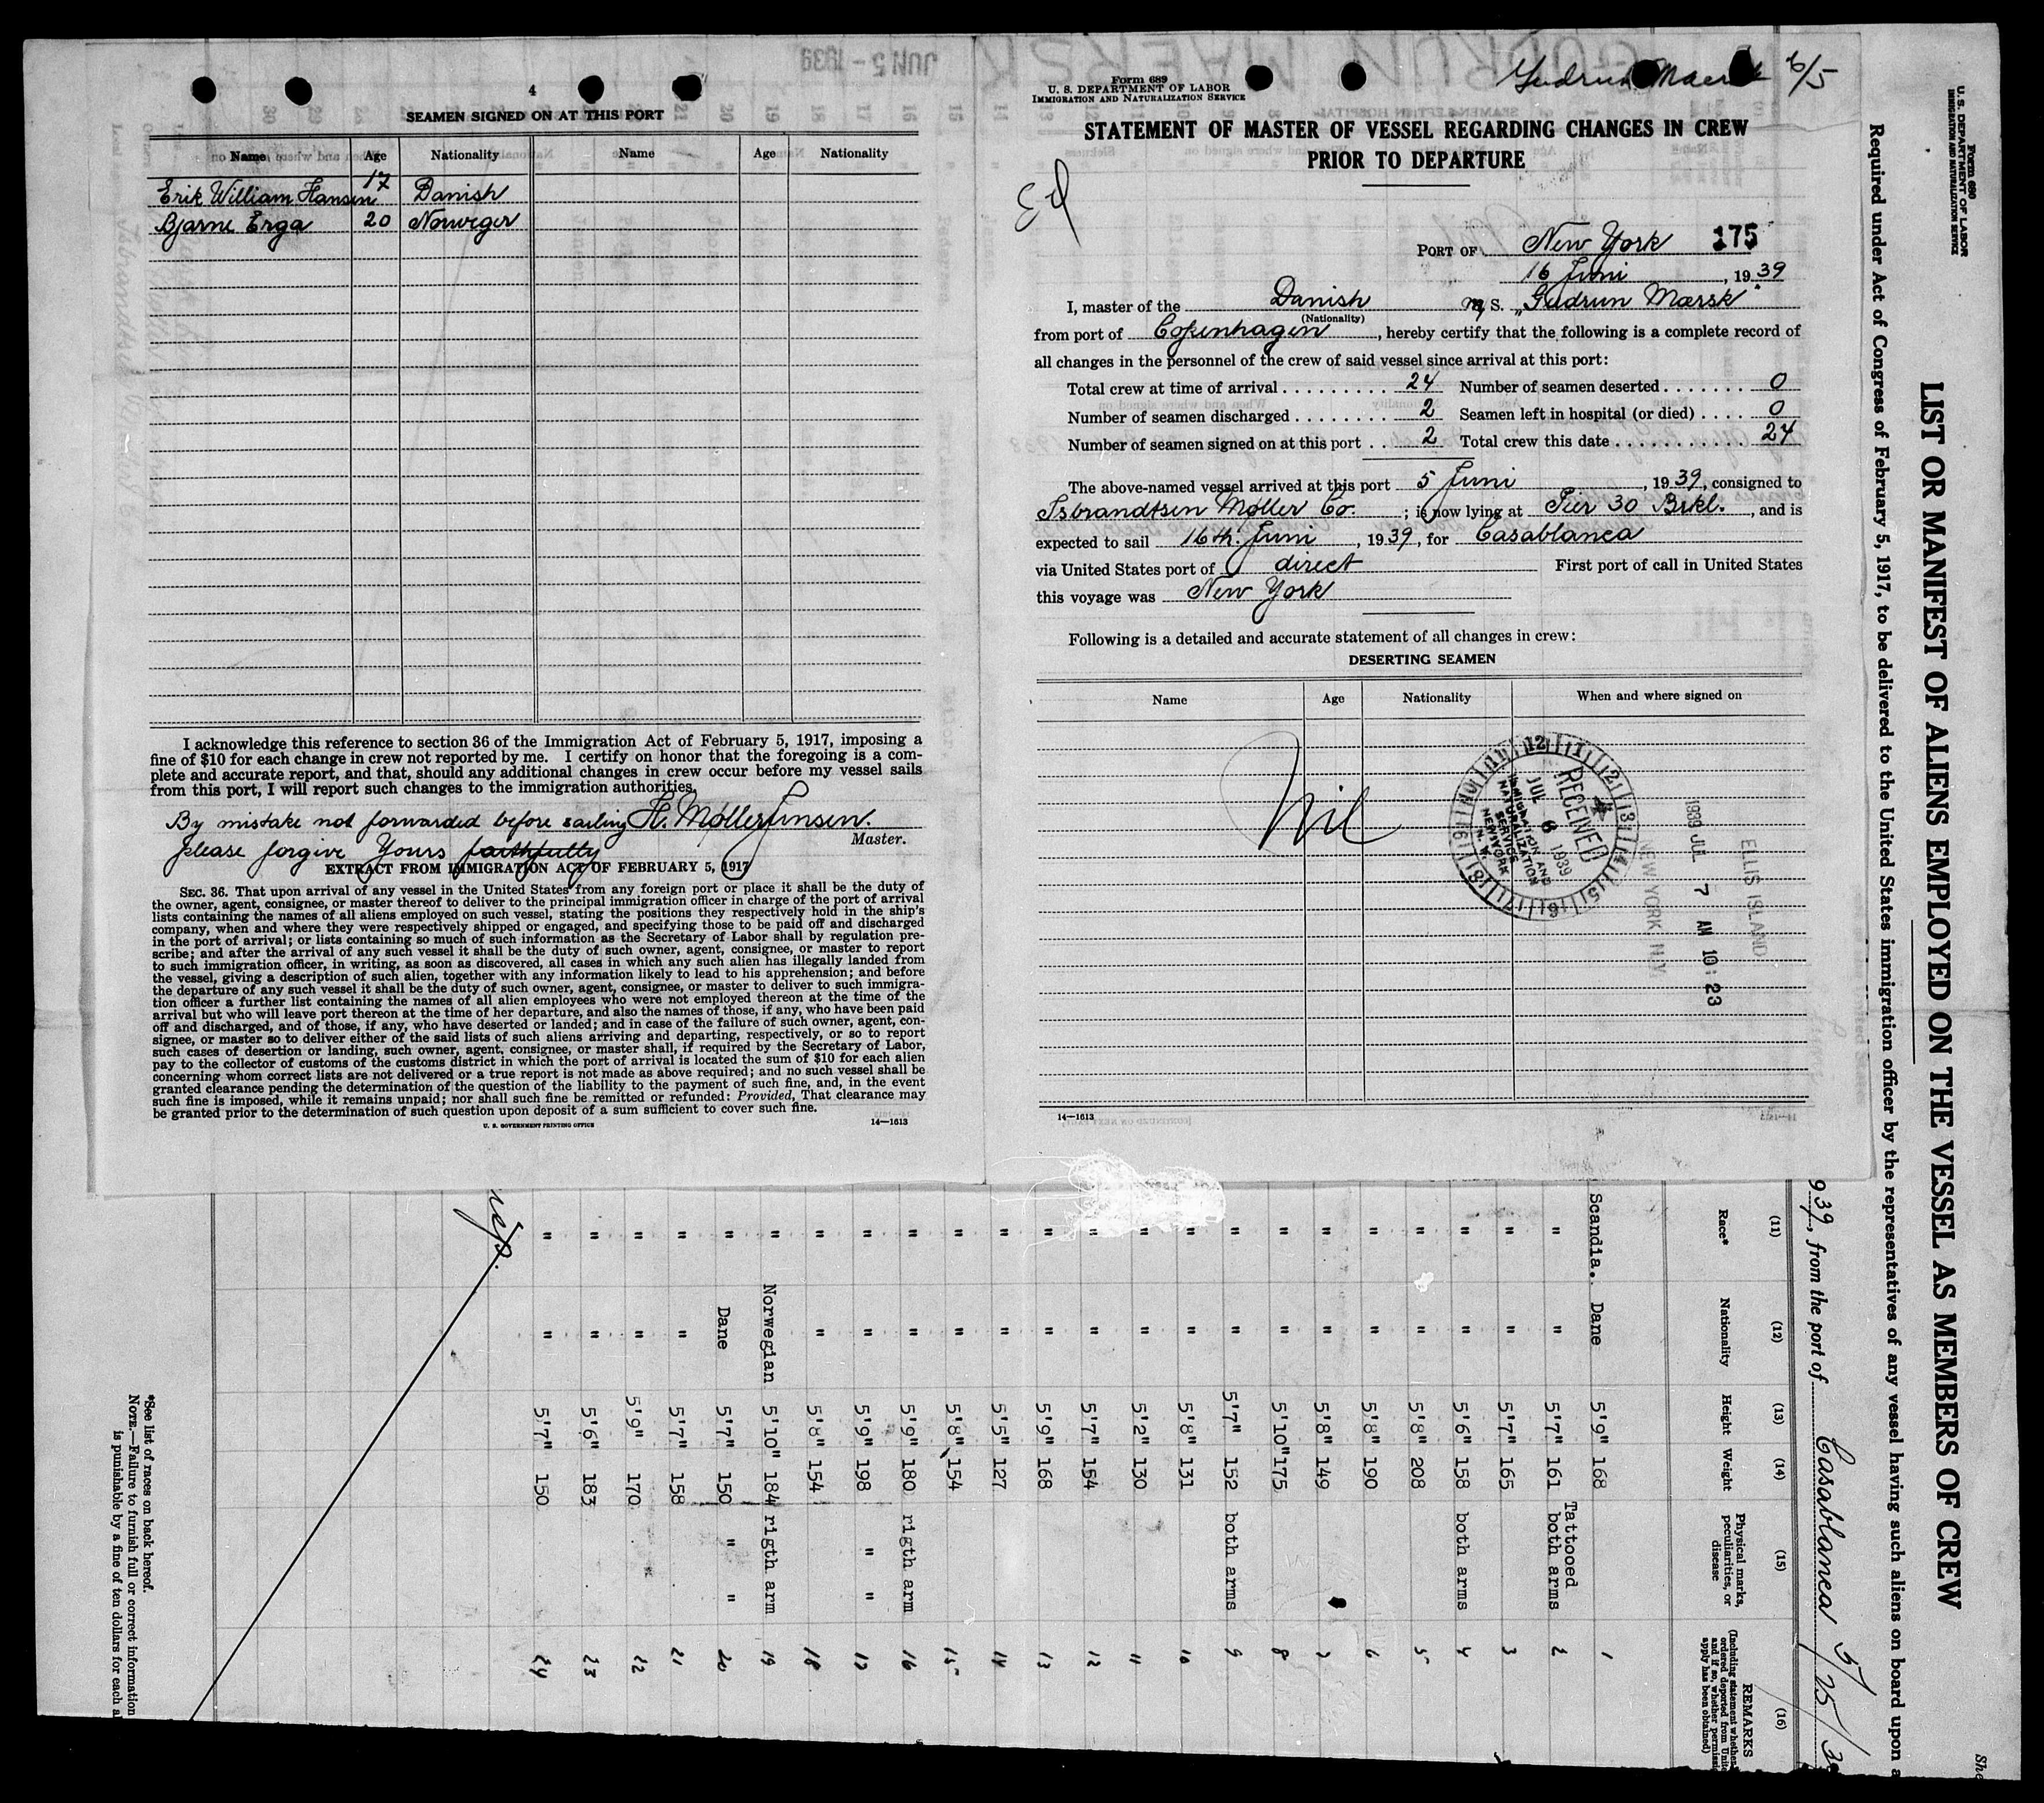 4
SEAMEN SIGNED ON AT THIS PORT
Name Age Nationality Name Age Nationality
Erik William Hansen 17 Danish
Bjarne Erga 20 Norweger
I acknowledge this reference to section 36 of the Immigration Act of February 5, 1917, imposing a
fine of $10 for each change in crew not reported by me. I certify on honor that the foregoing is a com-
plete and accurate report, and that, should any additional changes in crew occur before my vessel sails
from this port, I will report such changes to the immigration authorities.
By mistake not forwarded before sailing H. Møller Jensen.
please forgive Yours faithfully Master.
EXTRACT FROM IMMIGRATION ACT OF FEBRUARY 5, 1917
SEC. 36. That upon arrival of any vessel in the United States from any foreign port or place it shall be the duty of
the owner, agent, consignee, or master thereof to deliver to the principal immigration officer in charge of the port of arrival
lists containing the names of all aliens employed on such vessel, stating the positions they respectively hold in the ship's
company, when and where they were respectively shipped or engaged, and specifying those to be paid off and discharged
in the port of arrival; or lists containing so much of such information as the Secretary of Labor shall by regulation pre-
scribe; and after the arrival of any such vessel it shall be the duty of such owner, agent, consignee, or master to report
to such immigration officer, in writing, as soon as discovered, all cases in which any such alien has illegally landed from
the vessel, giving a description of such alien, together with any information likely to lead to his apprehension; and before
the departure of any such vessel it shall be the duty of such owner, agent, consignee, or master to deliver to such immigra-
tion officer a further list containing the names of all alien employees who were not employed thereon at the time of the
arrival but who will leave port thereon at the time of her departure, and also the names of those, if any, who have been paid
off and discharged, and of those, if any, who have deserted or landed; and in case of the failure of such owner, agent, con-
signee, or master so to deliver either of the said lists of such aliens arriving and departing, respectively, or so to report
such cases of desertion or landing, such owner, agent, consignee, or master shall, if required by the Secretary of Labor,
pay to the collector of customs of the customs district in which the port of arrival is located the sum of $10 for each alien
concerning whom correct lists are not delivered or a true report is not made as above required; and no such vessel shall be
granted clearance pending the determination of the question of the liability to the payment of such fine, and, in the event
such fine is imposed, while it remains unpaid; nor shall such fine be remitted or refunded: Provided, That clearance may
be granted prior to the determination of such question upon deposit of a sum sufficient to cover such fine.
U. S. GOVERNMENT PRINTING OFFICE 14—1613
Form 689
U. S. DEPARTMENT OF LABOR
IMMIGRATION AND NATURALIZATION SERVICE
Gudrun Maersk 6/5
STATEMENT OF MASTER OF VESSEL REGARDING CHANGES IN CREW
PRIOR TO DEPARTURE
PORT OF New York 175
16 Juni, 1939
I, master of the Danish M. S. „Gudrun Mærsk"
(Nationality)
from port of Copenhagen, hereby certify that the following is a complete record of
all changes in the personnel of the crew of said vessel since arrival at this port:
Total crew at time of arrival 24 Number of seamen deserted 0
Number of seamen discharged 2 Seamen left in hospital (or died) 0
Number of seamen signed on at this port 2 Total crew this date 24
The above-named vessel arrived at this port 5 Juni, 1939, consigned to
Isbrandtsen Møller Co.; is now lying at Pier 30 Brkl., and is
expected to sail 16th. Juni, 1939, for Casablanca
via United States port of direct First port of call in United States
this voyage was New York
Following is a detailed and accurate statement of all changes in crew:
DESERTING SEAMEN
Name Age Nationality When and where signed on
Nil
RECEIVED
JUL 6 1939
IMMIGRATION AND
NATURALIZATION
SERVICE
NEW YORK
N. Y.
ELLIS ISLAND
1939 JUL 7 AM 10:23
NEW YORK N.Y.
14—1613
Form 680
U. S. DEPARTMENT OF LABOR
IMMIGRATION AND NATURALIZATION SERVICE
LIST OR MANIFEST OF ALIENS EMPLOYED ON THE VESSEL AS MEMBERS OF CREW
Required under Act of Congress of February 5, 1917, to be delivered to the United States immigration officer by the representatives of any vessel having such aliens on board upon a
939, from the port of Casablanca 5/25/3
(11) (12) (13) (14) (15) (16)
Race* Nationality Height Weight Physical marks, peculiarities, or disease REMARKS
Scandia. Dane 5'9" 168 1
" " 5'7" 161 Tattooed both arms 2
" " 5'7" 165 3
" " 5'6" 158 both arms 4
" " 5'8" 208 5
" " 5'8" 190 6
" " 5'8" 149 7
" " 5'10" 175 8
" " 5'7" 152 both arms 9
" " 5'8" 131 10
" " 5'2" 130 11
" " 5'7" 154 12
" " 5'9" 168 13
" " 5'5" 127 14
" " 5'8" 154 15
" " 5'9" 180 rigth arm 16
" " 5'9" 198 " " 17
" " 5'8" 154 18
" Norwegian 5'10" 184 rigth arm 19
" Dane 5'7" 150 " " 20
" " 5'7" 158 21
" " 5'9" 170 22
" " 5'6" 183 23
" " 5'7" 150 24
*See list of races on back hereof.
NOTE.—Failure to furnish full or correct information
is punishable by a fine of ten dollars for each a